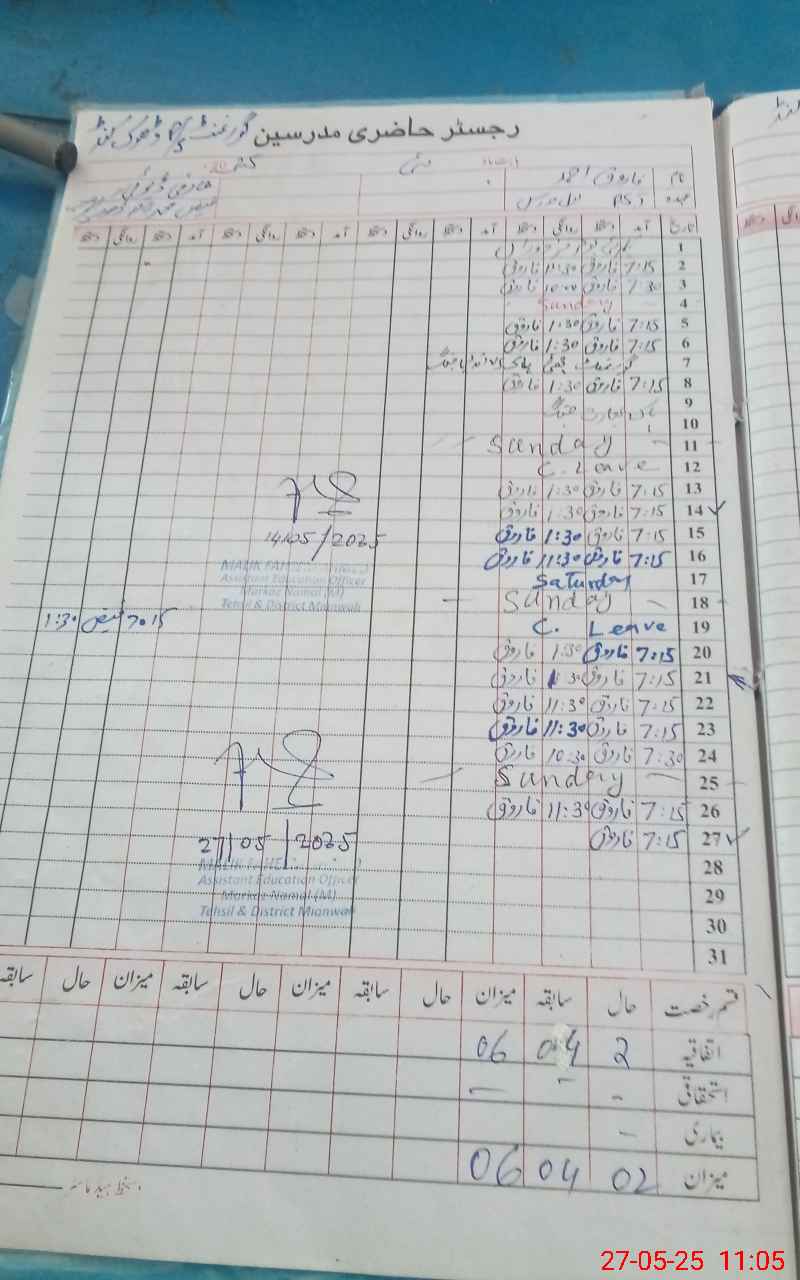 رجسٹر حاضری مدرسین گورنمنٹ P/S ڈھوک
نام فاروق احمد
عہدہ PST
تاریخ آمد دستخط روانگی دستخط آمد دستخط روانگی دستخط آمد دستخط روانگی دستخط آمد دستخط روانگی دستخط
1
2 7:15 فاروق 11:30 فاروق
3 7:30 فاروق 10:00 فاروق
4 Sunday
5 7:15 فاروق 1:30 فاروق
6 7:15 فاروق 1:30 فاروق
7
8 7:15 فاروق 1:30 فاروق
9
10
11 Sunday
12 C. Leave
13 7:15 فاروق 1:30 فاروق
14 7:15 فاروق 1:30 فاروق
15 7:15 فاروق 1:30 فاروق
14/05/2025
16 7:15 فاروق 11:30 فاروق
MALIK
Assistant Education Officer
Markaz Namal (M)
Tehsil & District Mianwali
17 Saturday
18 Sunday
19 C. Leave
7:15 فیض 1:30
20 7:15 فاروق 1:30 فاروق
21 7:15 فاروق 1:30 فاروق
22 7:15 فاروق 11:30 فاروق
23 7:15 فاروق 11:30 فاروق
24 7:30 فاروق 10:30 فاروق
25 Sunday
26 7:15 فاروق 11:30 فاروق
27 7:15 فاروق
27/05/2025
MALIK
Assistant Education Officer
Markaz Namal (M)
Tehsil & District Mianwali
28
29
30
31
قسم رخصت حال سابقہ میزان حال سابقہ میزان حال سابقہ میزان حال سابقہ
اتفاقیہ 2 04 06
استحقاقی - - -
بیماری -
میزان 02 04 06
دستخط ہیڈ ماسٹر
27-05-25 11:05